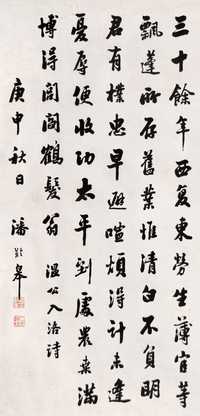 三十餘年西复東勞生薄宦等
飄蓬所存舊業惟清白不負明
君有樸忠早避喧煩得計未逢
憂辱便收功太平到處農桑滿
博得閭閻鶴髮翁 溫公入洛詩
庚申秋日 潘齡皋